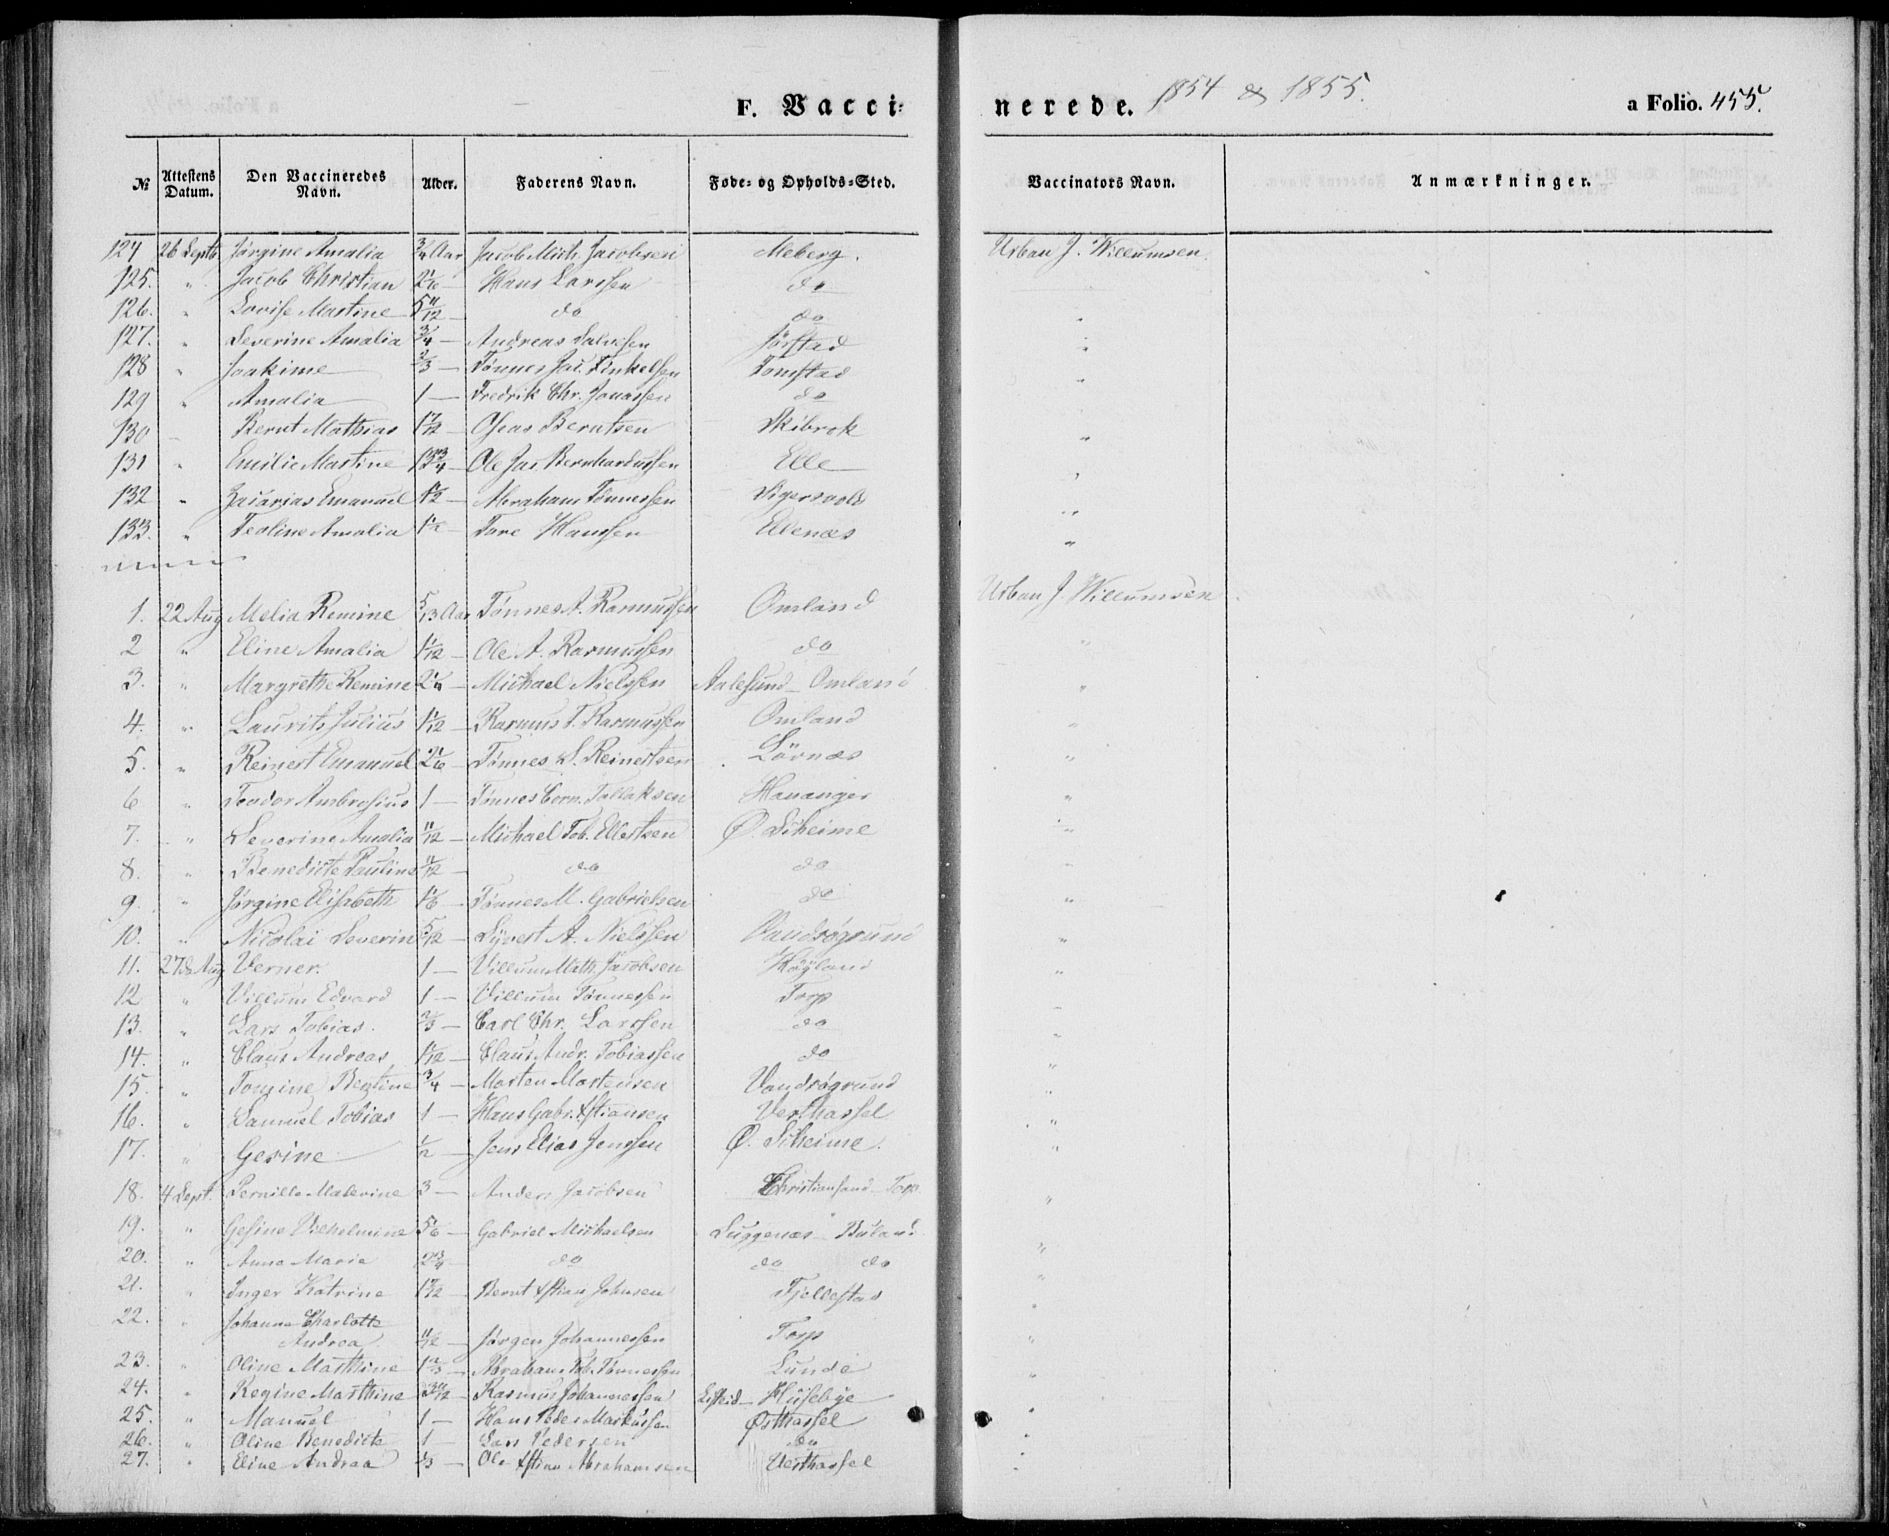 F. Vacci-
nerede. 1854 & 1855.
a Folio. 455.
№ Attestens Datum. Den Vaccineredes Navn. Alder. Faderens Navn. Føde- og Opholds-Sted. Vaccinators Navn. Anmærkninger.
124 26 Septb Jørgine Amalia 3/4 Aar Jacob Mich. Jacobsen Meberg. Urban J. Willumsen.
125. " Jacob Christian 2 1/6 — Hans Larssen do
126. " Lovise Martine 5 11/12 — do do "
127. " Severine Amalia 3/4 — Andreas Salvesen Jørstad "
128 " Joakime 2/3 — Tønnes Jac. Tomstad
129 " Amalia 1 — Fredrik Chr. Jonassen do "
130 — Bernt Mathias Oseas Berntsen Skibrok "
131 " Emilie Martine Ole Jac Bernhardussen Elle "
132 " Zacarias Emanuel Abraham Tønnessen Sigersvold "
133. " Teoline Amalia Tore Hanssen Ellenæs "
1. 22 Aug Melia Remine Aar Tønnes A. Rasmussen Omland Urban J. Willumsen
2 " Eline Amalia 1 1/12 — Ole A. Rasmussen do "
3. " Margrethe Remine 2 1/4 — Michael Nielssen Aalesund — Omland "
4. " Laurits Julius 1 1/12 — Rasmus T. Rasmussen Omland "
5. " Reinert Emanuel 2 1/6 — Tønnes S. Reinertsen Lövnæs "
6 " Teodor Ambrosius 1 — Tønnes Corn. Tollaksen Hananger "
7. " Severine Amalia 11/12 — Michael Tob. Ellertsen Ø. Diheime "
8. " Benedicte Pauline 11/12 — do do "
9. " Jørgine Elisabeth 1 1/6 — Tønnes M. Gabrielsen do "
10. " Nicolai Severin 5/12 — Syvert A. Nielssen Vandsøgrund "
11. 27de Aug Verner. 1 — Villum Math. Jacobsen Høyland "
12 " Villum Edvard 1 — Villum Tønnessen Torp
13. " Lars Tobias. 2/3 — Carl Chr. Larssen do
14. " Claus Andreas 1 1/12 — Claus Andr. Tobiassen do "
15. " Tomine Bertine 3/4 — Morten Mortensen Vandsøgrund "
16. " Samuel Tobias 1 — Hans Gabr. Xstiansen Vesthassel "
17. " Gesine 1/2 — Jens Elias Jenssen Ø. Diheime. "
18. 4 Sept. Pernille Malerine 3 — Anders Jacobsen Christiansand — Torp "
19. " Gesine Vilhelmine 5 1/6 — Gabriel Michaelsen Luggenæs — Buland
20. " Anna Marie 2 3/4 — do do do "
21. " Inger Katrine Bernt Xstian Johnsen Fjellestad
22. " Johanne Charlotte
Andrea 11/12 — Jørgen Johannessen Torp "
23. " Oline Marthine 1 2/3 — Abraham Tob. Tønnessen Lunde "
24. " Regine Marthine Rasmus Johannessen Huseby "
25. " Manuel 1 — Hans Peder Markussen Østhassel "
26. " Oline Benedicte 1 — Lars Pedersen do "
27. " Eline Andrea 1/3 — Ole Xstian Abrahamsen Vesthassel